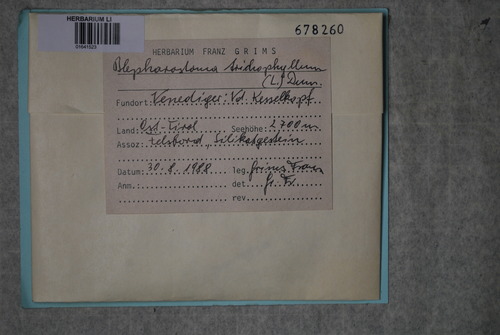 HERBARIUM LI
678260
HERBARIUM FRANZ GRIMS
Blepharostoma trichophyllum
(L.) Dum.
Fundort: Venediger: Vd. Kesselkopf
Land: Ost-Tirol Seehöhe: 2700 m
Assoz: Felsband, Silikatgestein
Datum: 30. 8. 1988 leg. Grims Franz
Anm. det. Gr. Fr.
rev.